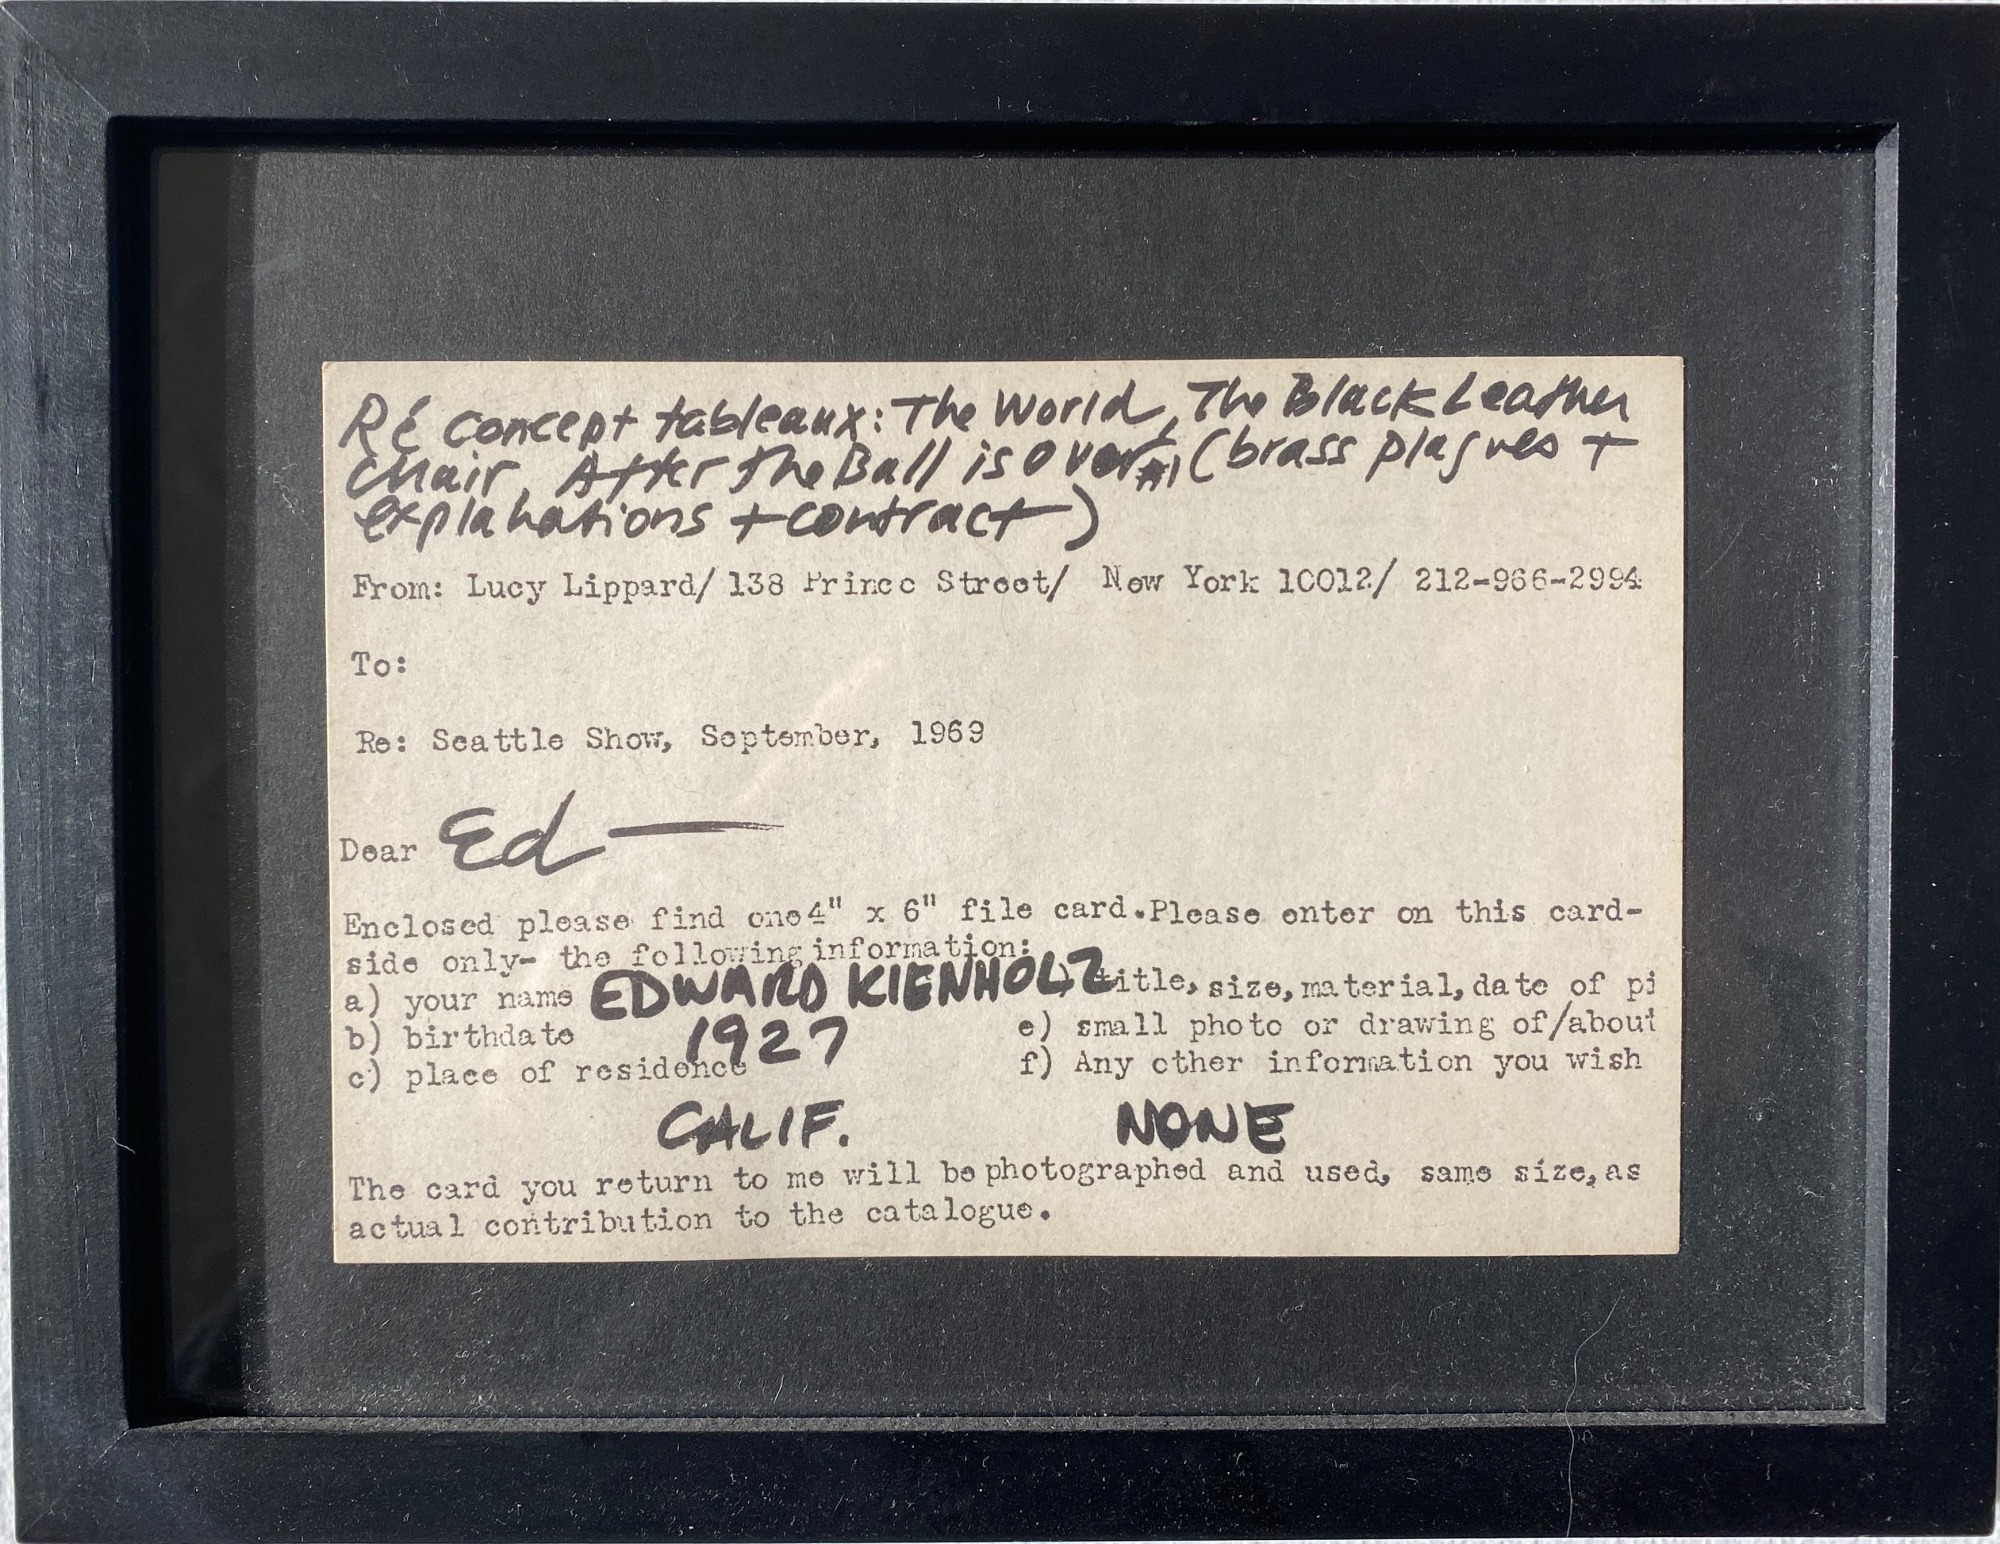 Ré concept tableaux: The World, The Black Leather
Chair, After The Ball is Over #1 (brass plaques +
explanations + contract)
From: Lucy Lippard/ 138 Prince Street/ New York 10012/ 212-966-2994
To:
Re: Seattle Show, September, 1969
Dear Ed —
Enclosed please find one 4" x 6" file card. Please enter on this card-
side only- the following information:
a) your name EDWARD KIENHOLZ ) title, size, material, date of pi
b) birthdate 1927 e) small photo or drawing of/about
c) place of residence f) Any other information you wish
CALIF. NONE
The card you return to me will be photographed and used, same size, as
actual contribution to the catalogue.